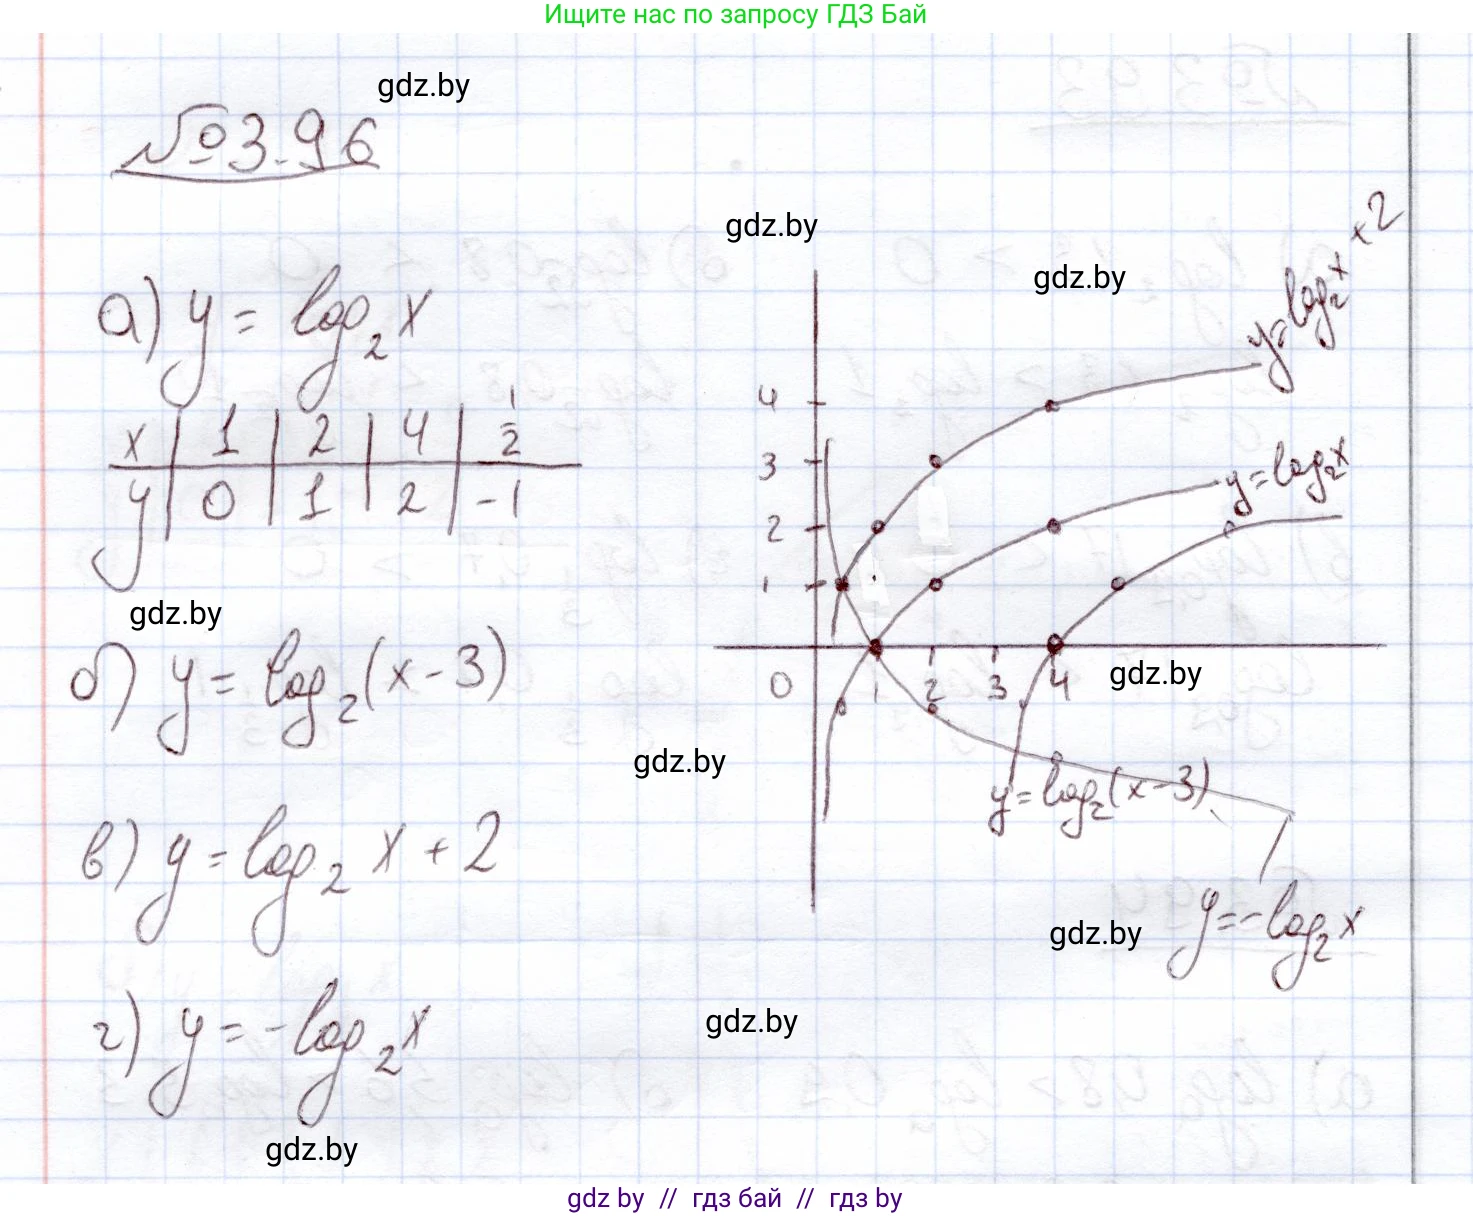 Ищите нас по запросу ГДЗ Бай
gdz.by
№3.96
gdz.by
gdz.by
а) y = log₂ x
x | 1 | 2 | 4 | 1/2
y | 0 | 1 | 2 | -1
gdz.by
б) y = log₂(x-3)
gdz.by
в) y = log₂ x + 2
г) y = -log₂ x
gdz.by
gdz.by
y=log₂x +2
4
3
y=log₂x
2
1
0 1 2 3 4
gdz.by
y=log₂(x-3)
y=-log₂x
gdz.by
gdz by // гдз бай // гдз by